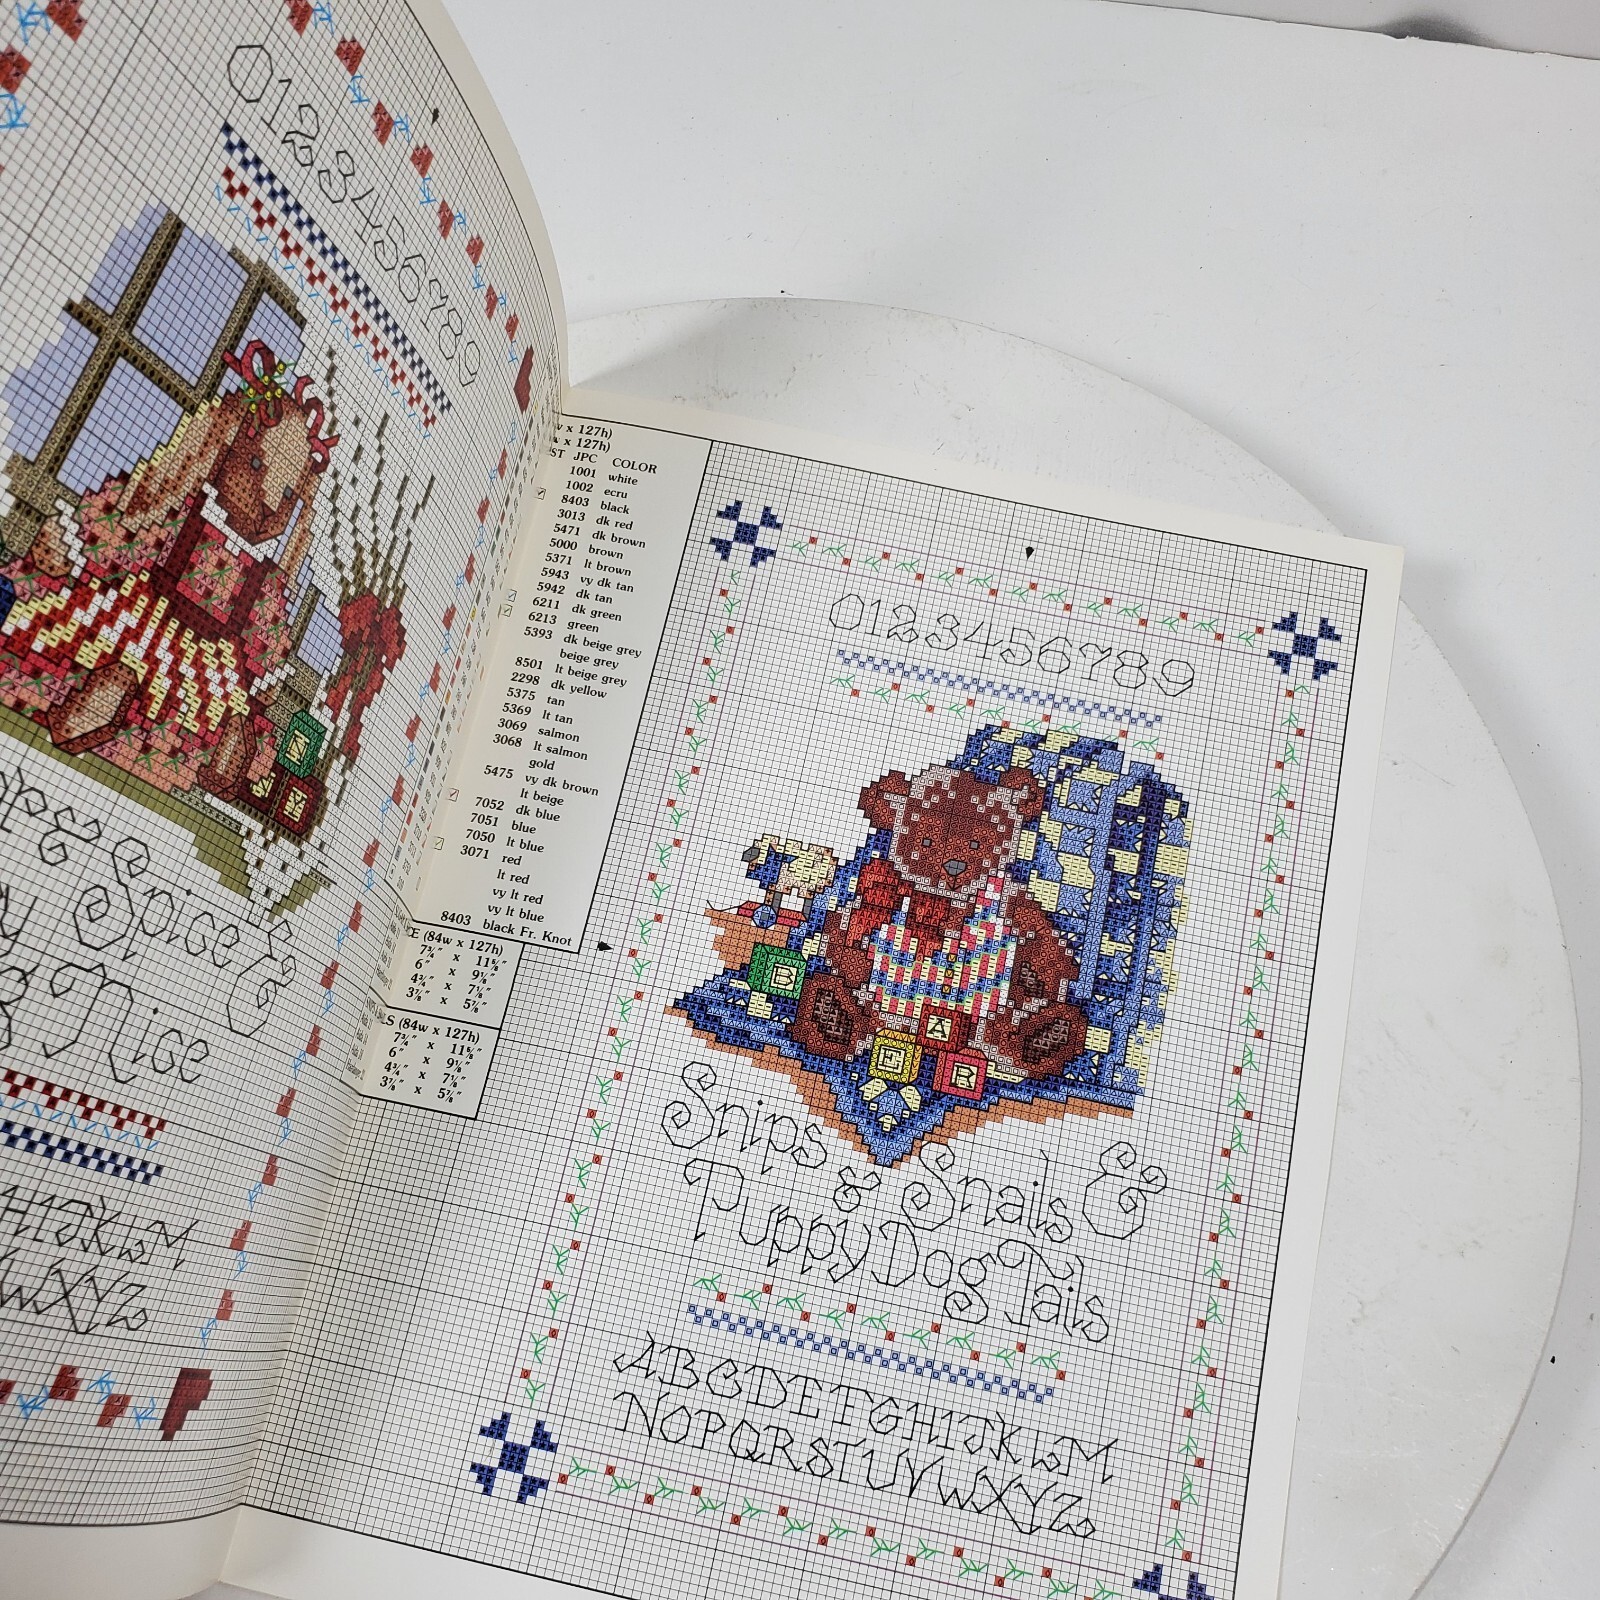 0123456789
Spice &
Nice
w x 127h)
w x 127h)
ST JPC COLOR
1001 white
1002 ecru
8403 black
3013 dk red
5471 dk brown
5000 brown
5371 lt brown
5943 vy dk tan
5942 dk tan
6211 dk green
6213 green
5393 dk beige grey
beige grey
8501 lt beige grey
2298 dk yellow
5375 tan
5369 lt tan
3069 salmon
3068 lt salmon
gold
5475 vy dk brown
lt beige
7052 dk blue
7051 blue
7050 lt blue
3071 red
lt red
vy lt red
vy lt blue
8403 black Fr. Knot
CE (84w x 127h)
7¾" x 11⅝"
6" x 9⅛"
4¾" x 7⅛"
3⅞" x 5⅞"
LS (84w x 127h)
7¾" x 11⅝"
6" x 9⅛"
4¾" x 7⅛"
3⅞" x 5⅞"
0123456789
B
A
E
R
Snips & Snails &
Puppy Dog Tails
ABCDEFGHIJKLM
NOPQRSTUVWXYZ